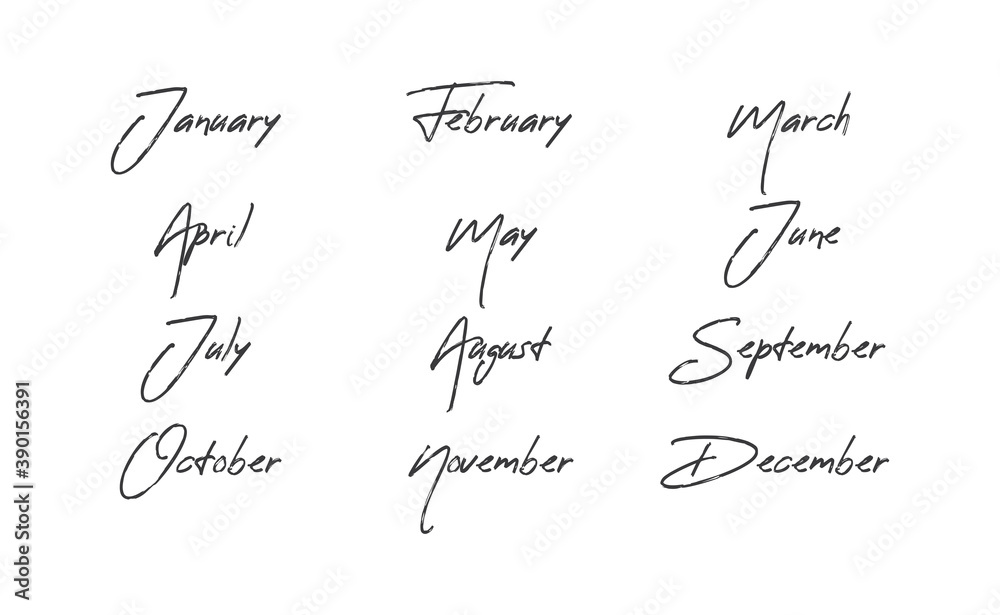 January February March
April May June
July August September
October November December
Adobe Stock | #390156391